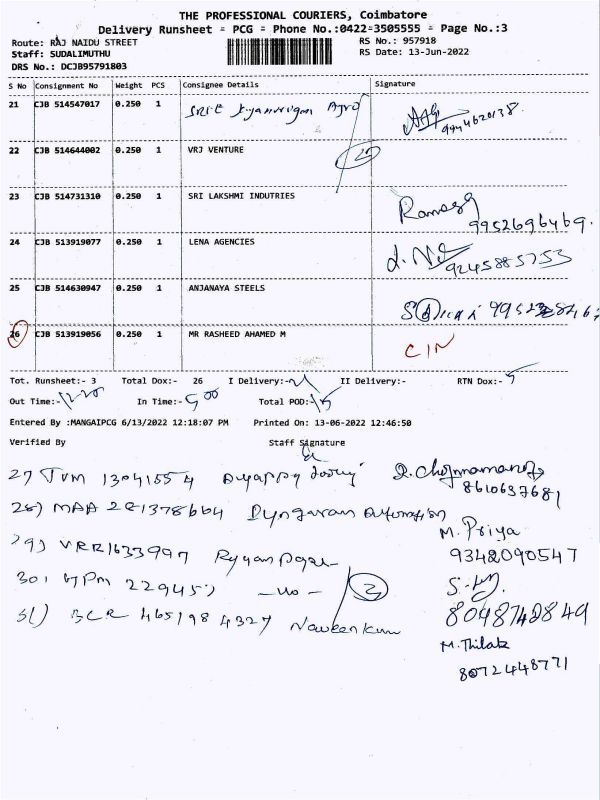 THE PROFESSIONAL COURIERS, Coimbatore
Delivery Runsheet = PCG = Phone No.:0422-3505555 = Page No.:3
Route: RAJ NAIDU STREET RS No.: 957918
Staff: SUDALIMUTHU RS Date: 13-Jun-2022
DRS No.: DCJB95791803
S No Consignment No Weight PCS Consignee Details Signature
21 CJB 514547017 0.250 1 Agro
9944620138
22 CJB 514644002 0.250 1 VRJ VENTURE
23 CJB 514731310 0.250 1 SRI LAKSHMI INDUTRIES
9952696469.
24 CJB 513919077 0.250 1 LENA AGENCIES
9245885753
25 CJB 514630947 0.250 1 ANJANAYA STEELS
26 CJB 513919056 0.250 1 MR RASHEED AHAMED M
CIN
Tot. Runsheet:- 3 Total Dox:- 26 I Delivery:- II Delivery:- RTN Dox:- 5
Out Time:- 12.20 In Time:- 5.00 Total POD:-
Entered By :MANGAIPCG 6/13/2022 12:18:07 PM Printed On: 13-06-2022 12:46:50
Verified By Staff Signature
27 TVM 13041554
8610637681
28) MAA 281378604 Automation
M. Priya
29) VRR1633997
9342090547
30) 229457 -do- 2
8048742849
31) BCR 4651984327 Naveenkum
M. Thilak
8072448771